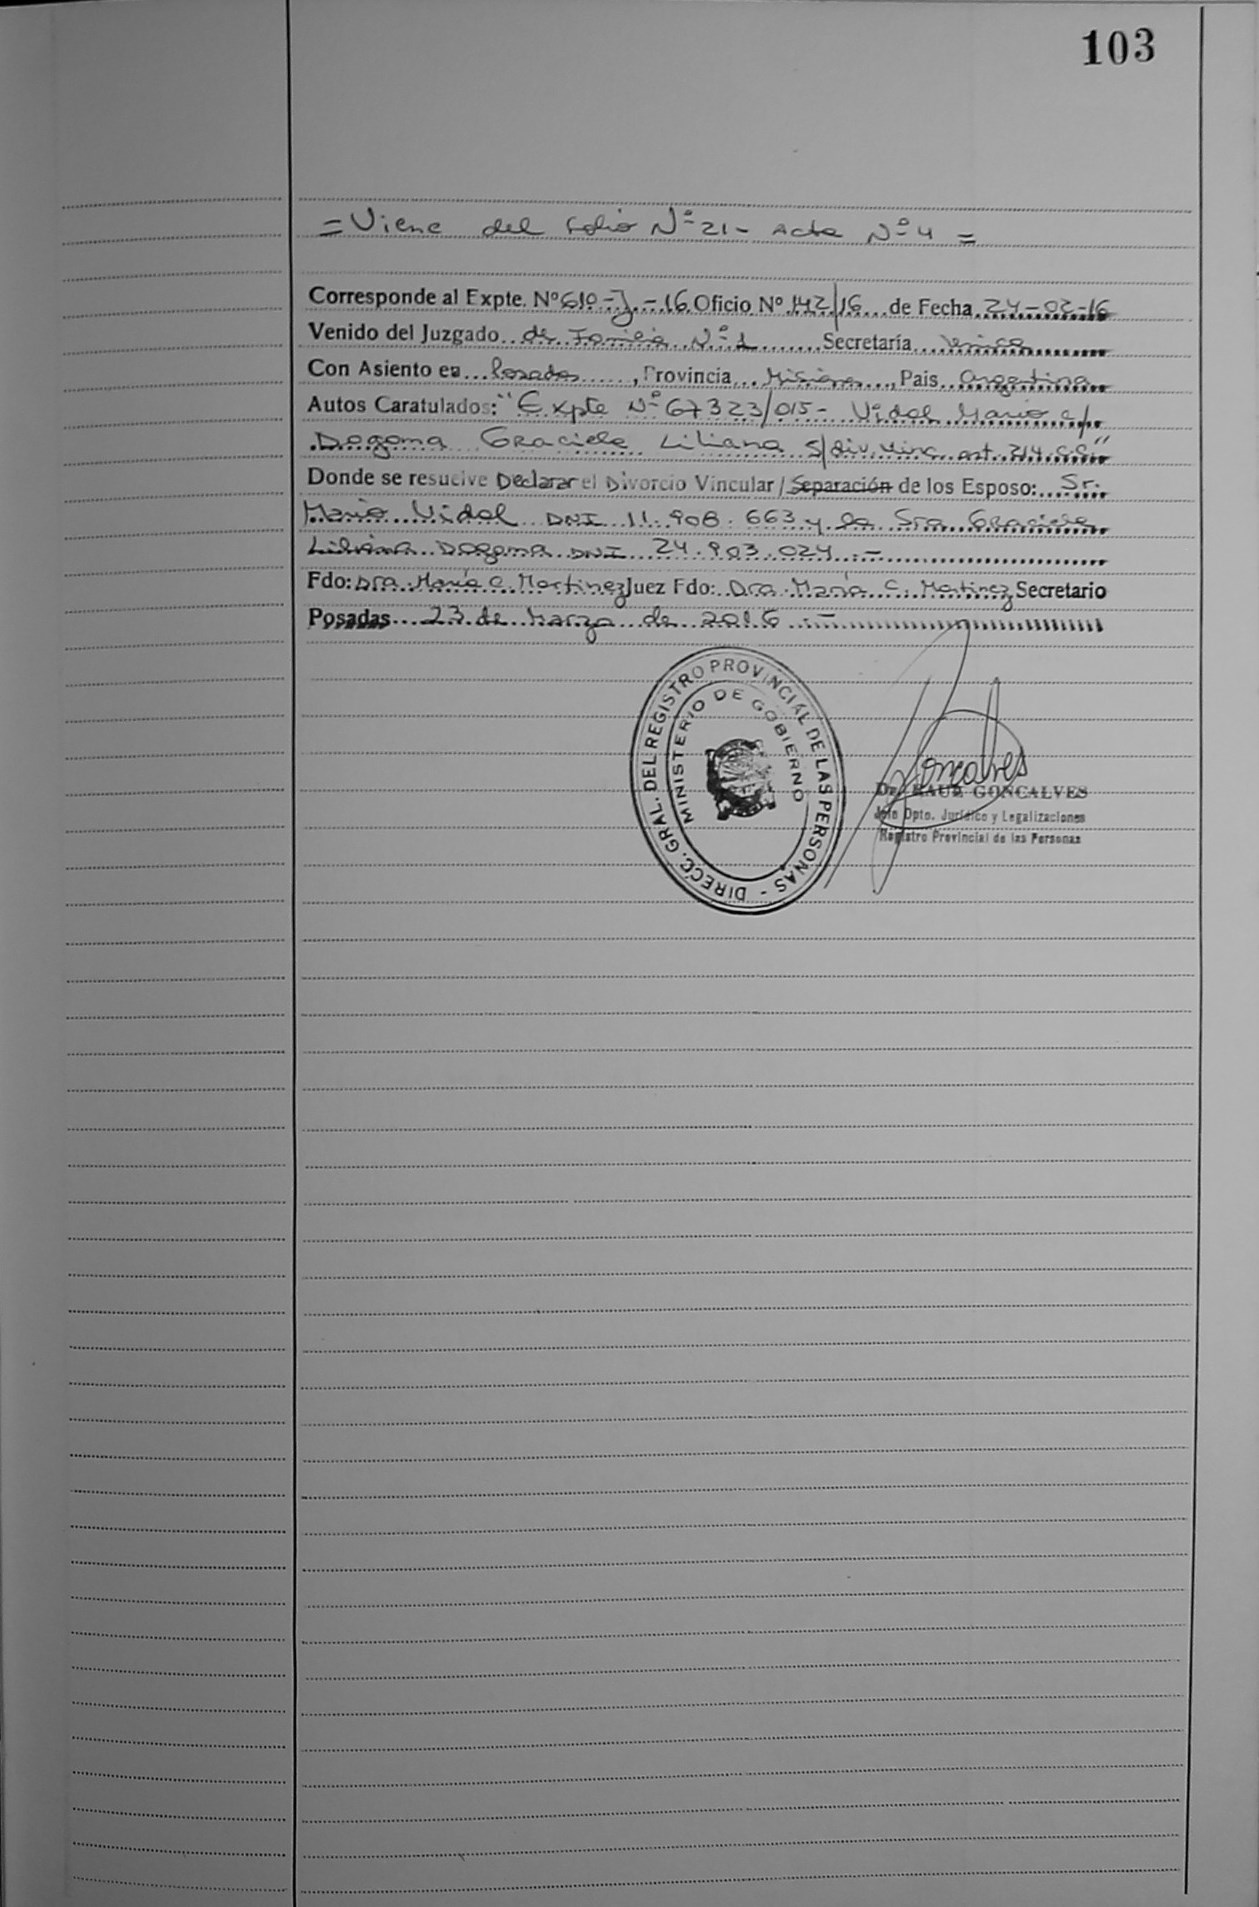 103
= Viene del folio Nº 21 - Acta Nº 4 =
Corresponde al Expte. Nº 610-J-16 Oficio Nº 142/16 de Fecha 24-02-16
Venido del Juzgado de Familia Nº 1 Secretaría Unica
Con Asiento en Posadas, Provincia Misiones, Pais Argentina
Autos Caratulados: "Expte Nº 67323/015 - Vidal Mario c/
Dogoma Graciela Liliana s/div. vinc. art. 214 C.C"
Donde se resuelve Declarar el Divorcio Vincular / Separación de los Esposo: Sr.
Mario Vidal DNI 11.908.663 y la Sra Graciela
Liliana Dogoma DNI 24.903.024.-
Fdo: Dra. María C. Martinez Juez Fdo: Dra. María C. Martinez Secretario
Posadas 23 de Marzo de 2016.-
DIRECC. GRAL. DEL REGISTRO PROVINCIAL DE LAS PERSONAS -
MINISTERIO DE GOBIERNO
Goncalves
Dr. RAUL GONCALVES
Jefe Dpto. Jurídico y Legalizaciones
Registro Provincial de las Personas